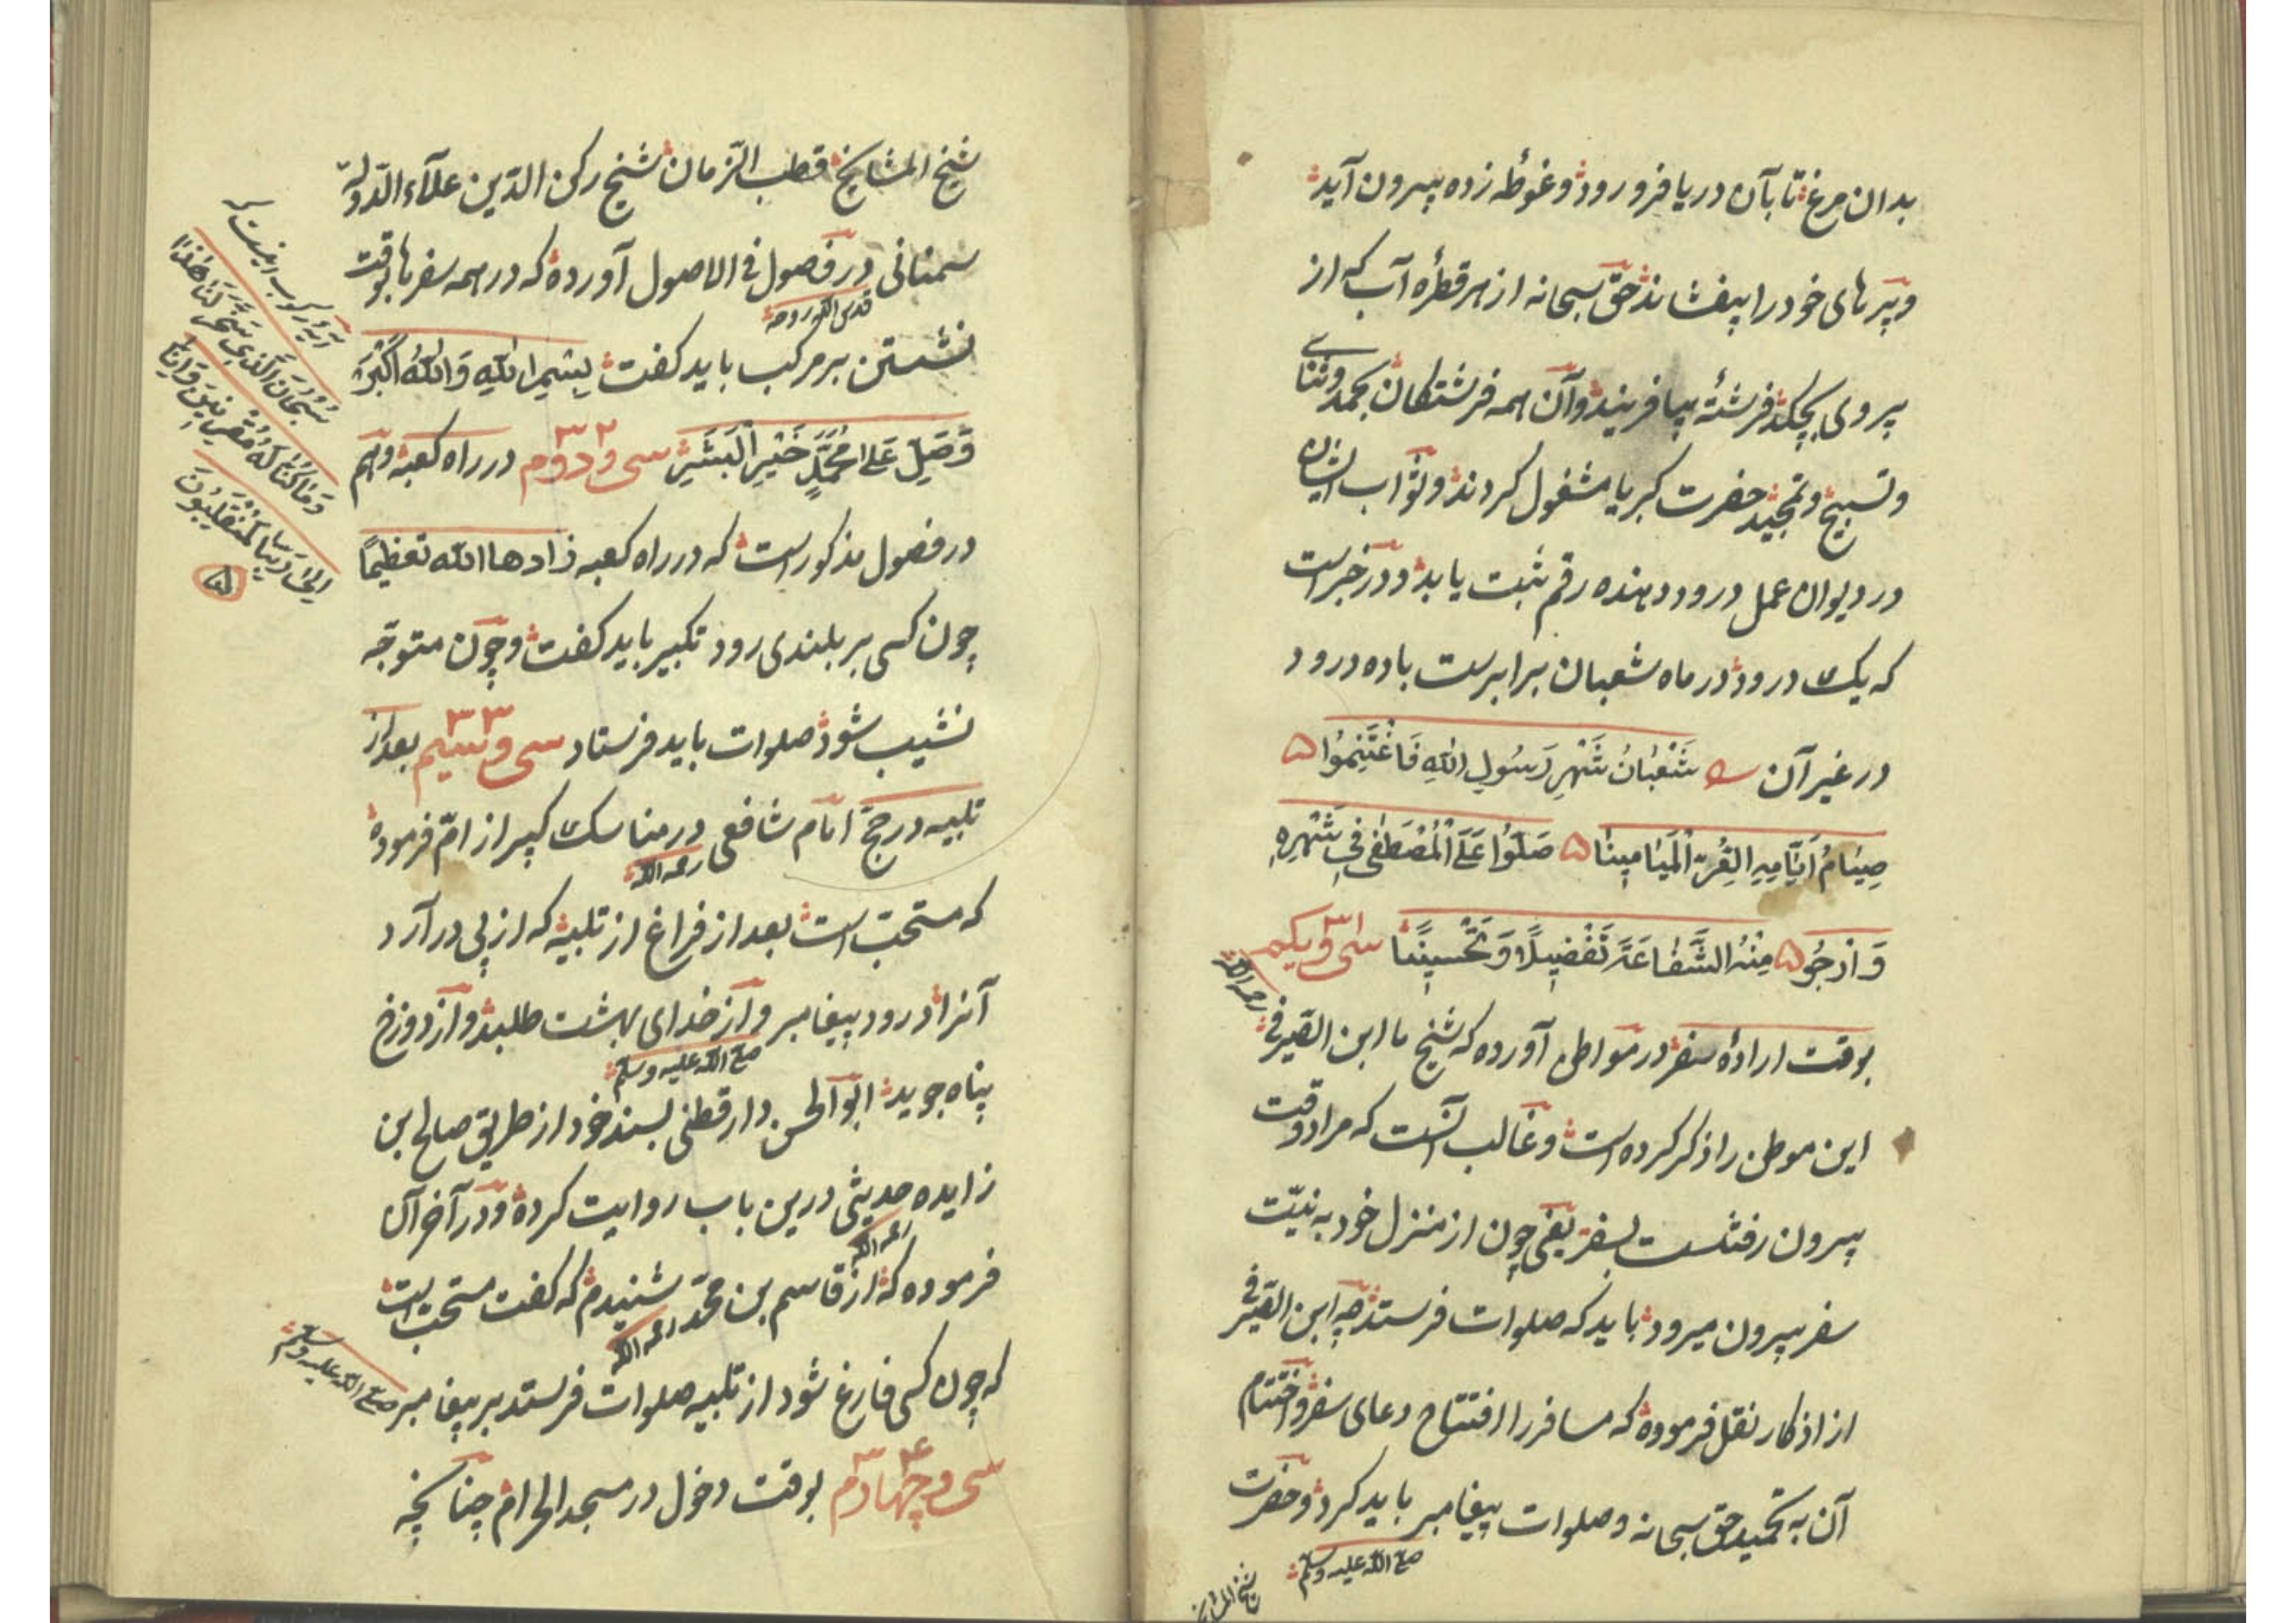 بدان مرغ تا بآن دریا فرو رود و غوطه زده بیرون آید
و پرهای خود را بیفشاند حق سبحانه از هر قطرهٔ آب که از
پر وی بچکد فرشتهٔ بیافریند و آن همه فرشتکان بحمد و ثنای
و تسبیح و تمجید حضرت کبریا مشغول کردند و ثواب ایشان
در دیوان عمل درود دهنده رقم ثبت یابد و در خبر است
که یک درود در ماه شعبان برابرست با ده درود
در غیر آن شَعْبٰانُ شَهْرِ رَسُولِ اللهِ فَاغْتَنِمُوا
صِيٰامُ اَيّٰامِهِ الغُرّ الْمَيٰامِينٰا صَلّوُا عَلَى الْمُصْطَفٰى فِي شَهْرِهِ
وَ ارْجُو مِنْهُ الشَّفٰاعَةَ تَفْضِيلًا وَ تَحْسِينًا سی و یکم
بوقت ارادهٔ سفر در مواطن آورده که شیخ ما ابن الصیرفی
رحمه الله
این موطن را ذکر کرده است و غالب آنست که مراد وقت
بیرون رفتنست بسفر یعنی چون از منزل خود به نیّت
سفر بیرون میرود باید که صلوات فرستد چه ابن الصیرفی
از اذکار نقل فرموده که مسافر را افتتاح دعای سفر و اختتام
آن به تحمید حق سبحانه و صلوات پیغامبر باید کرد و حضرت
صلی الله علیه وسلم
شیخ المشایخ
شیخ المشایخ قطب الزّمان شیخ رکن الدّین علآء الدّولة
سمنانی در فصول فی الاصول آورده که در همه سفرها بوقت
قدس الله روحه
نشستن بر مرکب باید کفت بِسْمِ اللهِ وَ اللهُ اَكْبَرُ
وَصَلِّ عَلىٰ مُحَمَّدٍ خَيْرِ الْبَشَرِ سی و دوم ۳۲ در راه کعبه و هم
در فصول مذکور است که در راه کعبه زادها الله تعظیمًا
چون کسی بر بلندی رود تکبیر باید کفت و چون متوجّه
نشیب شود صلوات باید فرستاد سی و سیم ۳۳ بعد از
تلبیه در حجّ امام شافعی در مناسک کبیر از امّ فرموده
رحمه الله
که مستحبّ است بعد از فراغ از تلبیه که از پی درآرد
آنرا درود پیغامبر و از خدای بهشت طلبد و از دوزخ
صلی الله علیه وسلم
پناه جوید ابو الحسن دارقطنی بسند خود از طریق صالح ابن
زایده حدیثی درین باب روایت کرده و در آخر آن
رحمه الله
فرموده که از قاسم بن محمّد شنیدم که کفت مستحب است
رحمه الله
که چون کسی فارغ شود از تلبیه صلوات فرستد بر پیغامبر
صلی الله علیه وسلم
سی و چهارم ۳۴ بوقت دخول در مسجد الحرام چنانچه
آیهٔ رکوب اینست که
سُبْحَانَ الَّذِي سَخَّرَ لَنَا هٰذَا
وَمٰا كُنَّا لَهُ مُقْرِنِينَ وَ اِنَّا
اِلىٰ رَبِّنَا لَمُنْقَلِبُونَ